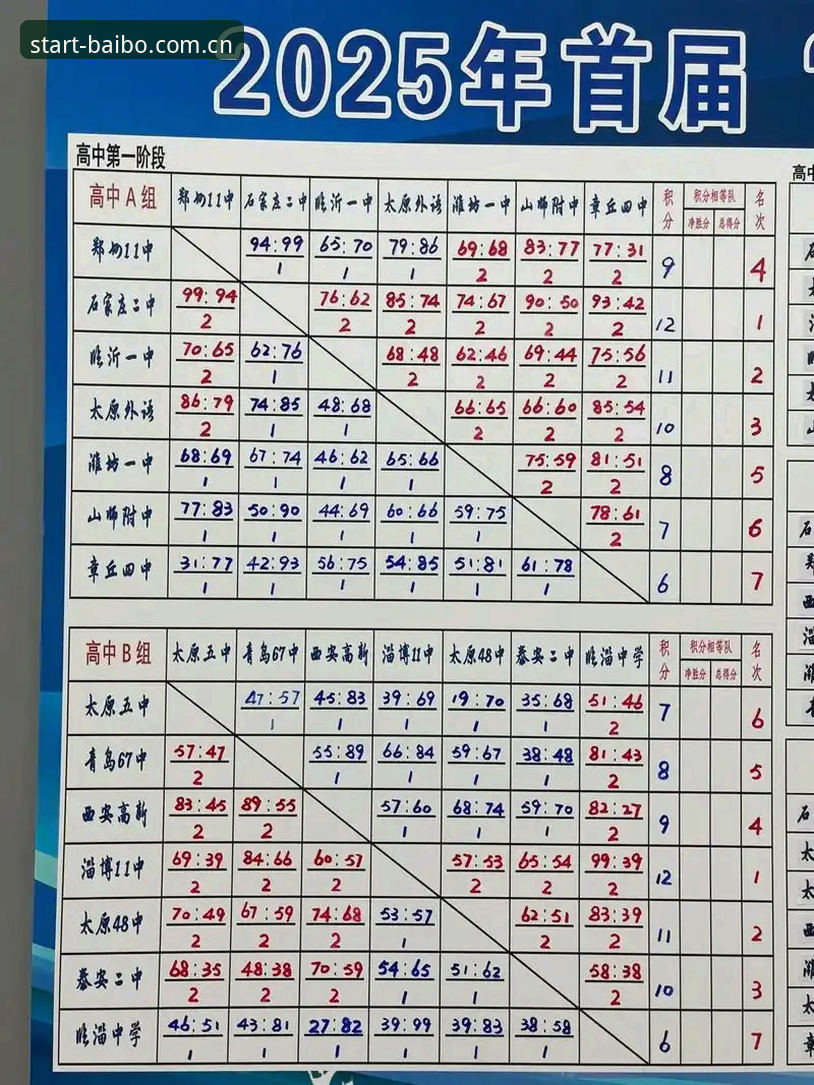 start-baibo.com.cn
2025年首届
高中第一阶段
高中A组 郑州11中 石家庄二中 临沂一中 太原外语 潍坊一中 山师附中 章丘四中 积分 积分相等队 净胜分 总得分 名次
郑州11中 94:99 65:70 79:86 69:68 83:77 77:31 9 4
1 1 1 2 2 2
石家庄二中 99:94 76:62 85:74 74:67 90:50 93:42 12 1
2 2 2 2 2 2
临沂一中 70:65 62:76 68:48 62:46 69:44 75:56 11 2
2 1 2 2 2 2
太原外语 86:79 74:85 48:68 66:65 66:60 85:54 10 3
2 1 1 2 2 2
潍坊一中 68:69 67:74 46:62 65:66 75:59 81:51 8 5
1 1 1 1 2 2
山师附中 77:83 50:90 44:69 60:66 59:75 78:61 7 6
1 1 1 1 1 2
章丘四中 31:77 42:93 56:75 54:85 51:81 61:78 6 7
1 1 1 1 1 1
高中B组 太原五中 青岛67中 西安高新 淄博11中 太原48中 泰安二中 临淄中学 积分 积分相等队 净胜分 总得分 名次
太原五中 47:57 45:83 39:69 19:70 35:68 51:46 7 6
1 1 1 1 1 2
青岛67中 57:47 55:89 66:84 59:67 38:48 81:43 8 5
2 1 1 1 1 2
西安高新 83:45 89:55 57:60 68:74 59:70 82:27 9 4
2 2 1 1 1 2
淄博11中 69:39 84:66 60:57 57:53 65:54 99:39 12 1
2 2 2 2 2 2
太原48中 70:49 67:59 74:68 53:57 62:51 83:39 11 2
2 2 2 1 2 2
泰安二中 68:35 48:38 70:59 54:65 51:62 58:38 10 3
2 2 2 1 1 2
临淄中学 46:51 43:81 27:82 39:99 39:83 38:58 6 7
1 1 1 1 1 1